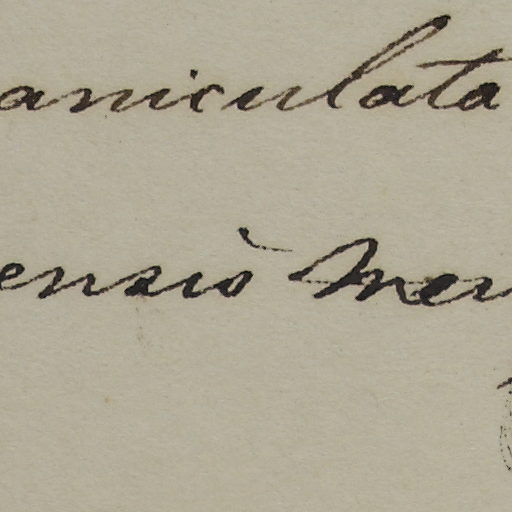 aniculata
ensis Mer